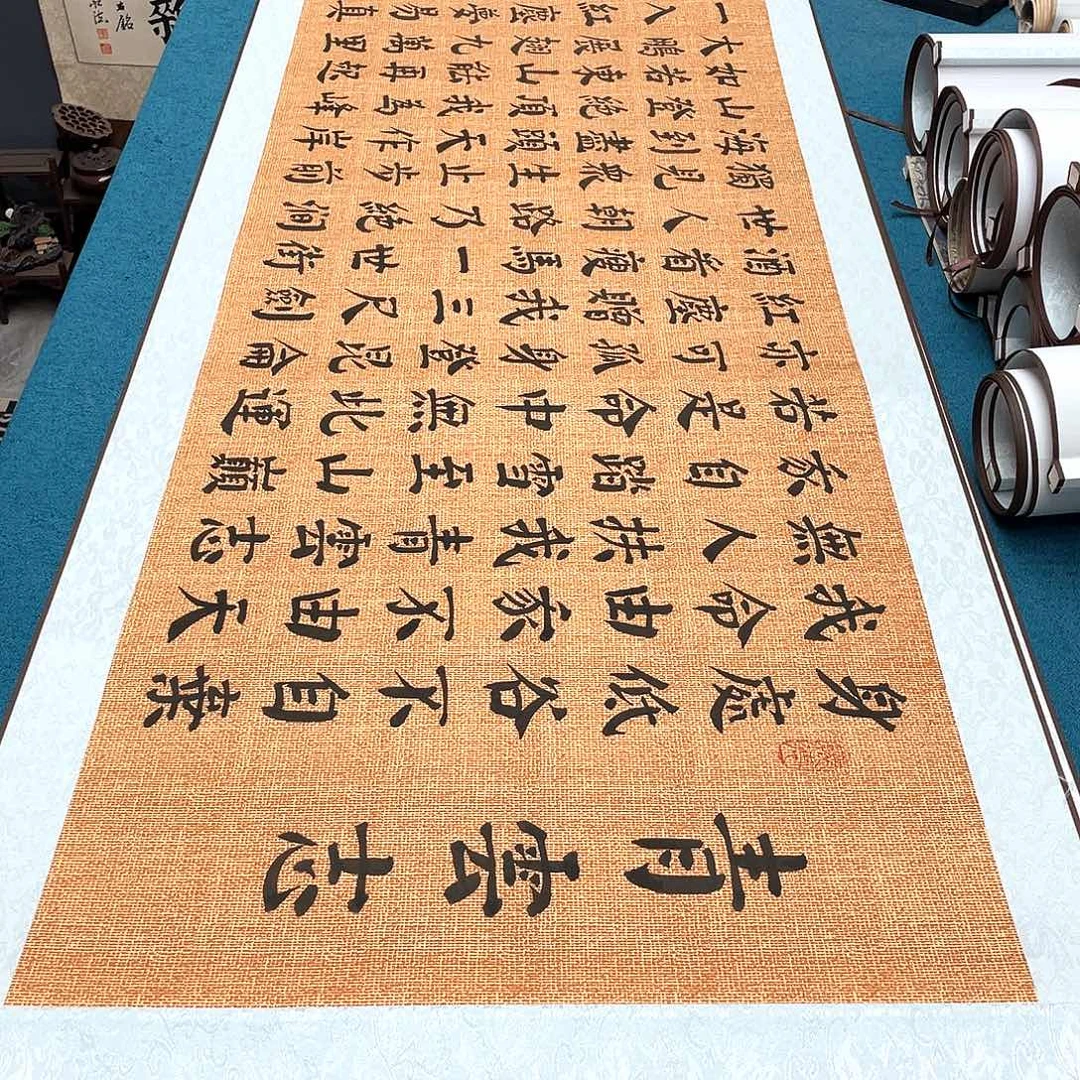 青雲志
身處低谷不自棄
我命由家不由天
無人扶我青雲志
家自踏雪至山巔
若是命中無此運
亦可孤身登昆侖
紅塵贈我三尺劍
酒着瘦馬一世街
世人朝路乃絶澗
獨見衆生止步前
海到盡頭天作岸
山登絶頂我爲峰
如若東山能再起
大鵬展翅九萬里
一入紅塵夢易真